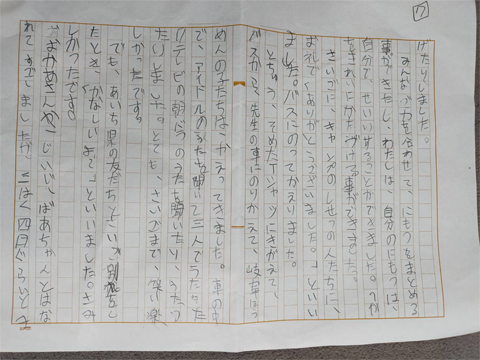 7
げたりしました。
みんなで力を合わせて、にもつをまとめる
事ができたし、わたしは、自分のにもつは、
自分で、せいいりすることができました。
をきれいにかたづける事ができました。
さいごに、キャンプのしせつの人たちに、
お礼で「ありがとうございました。」といい
ました。バスにのってかえりました。
とちゅう、そめたTシャツにきがえて、
バスから、先生の車にのりかえて、岐阜
めんの子たちはかえってきました。車の中
で、アイドルのうたを聞いて三人でうたった
り、テレビの朝ドラのうたを聞いたり、うたっ
たりしました。とても、さいごまで、笑い楽
しかったです。
でも、あいち県の友だちと
たとき、「かなしいよ〜」といいました。さみ
しかったです。
おかあさんやじいじ、ばあちゃんとはな
れてすごしましたが、二はく四日ぐらいとま